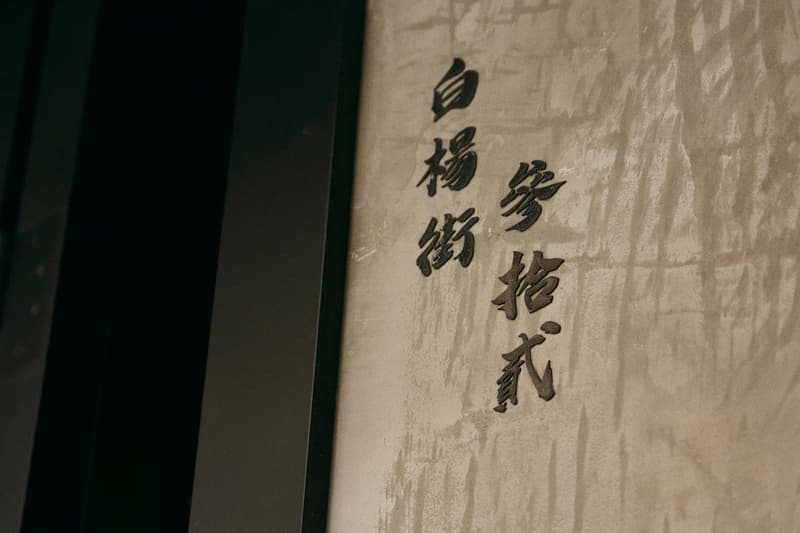 白楊街
參拾貳